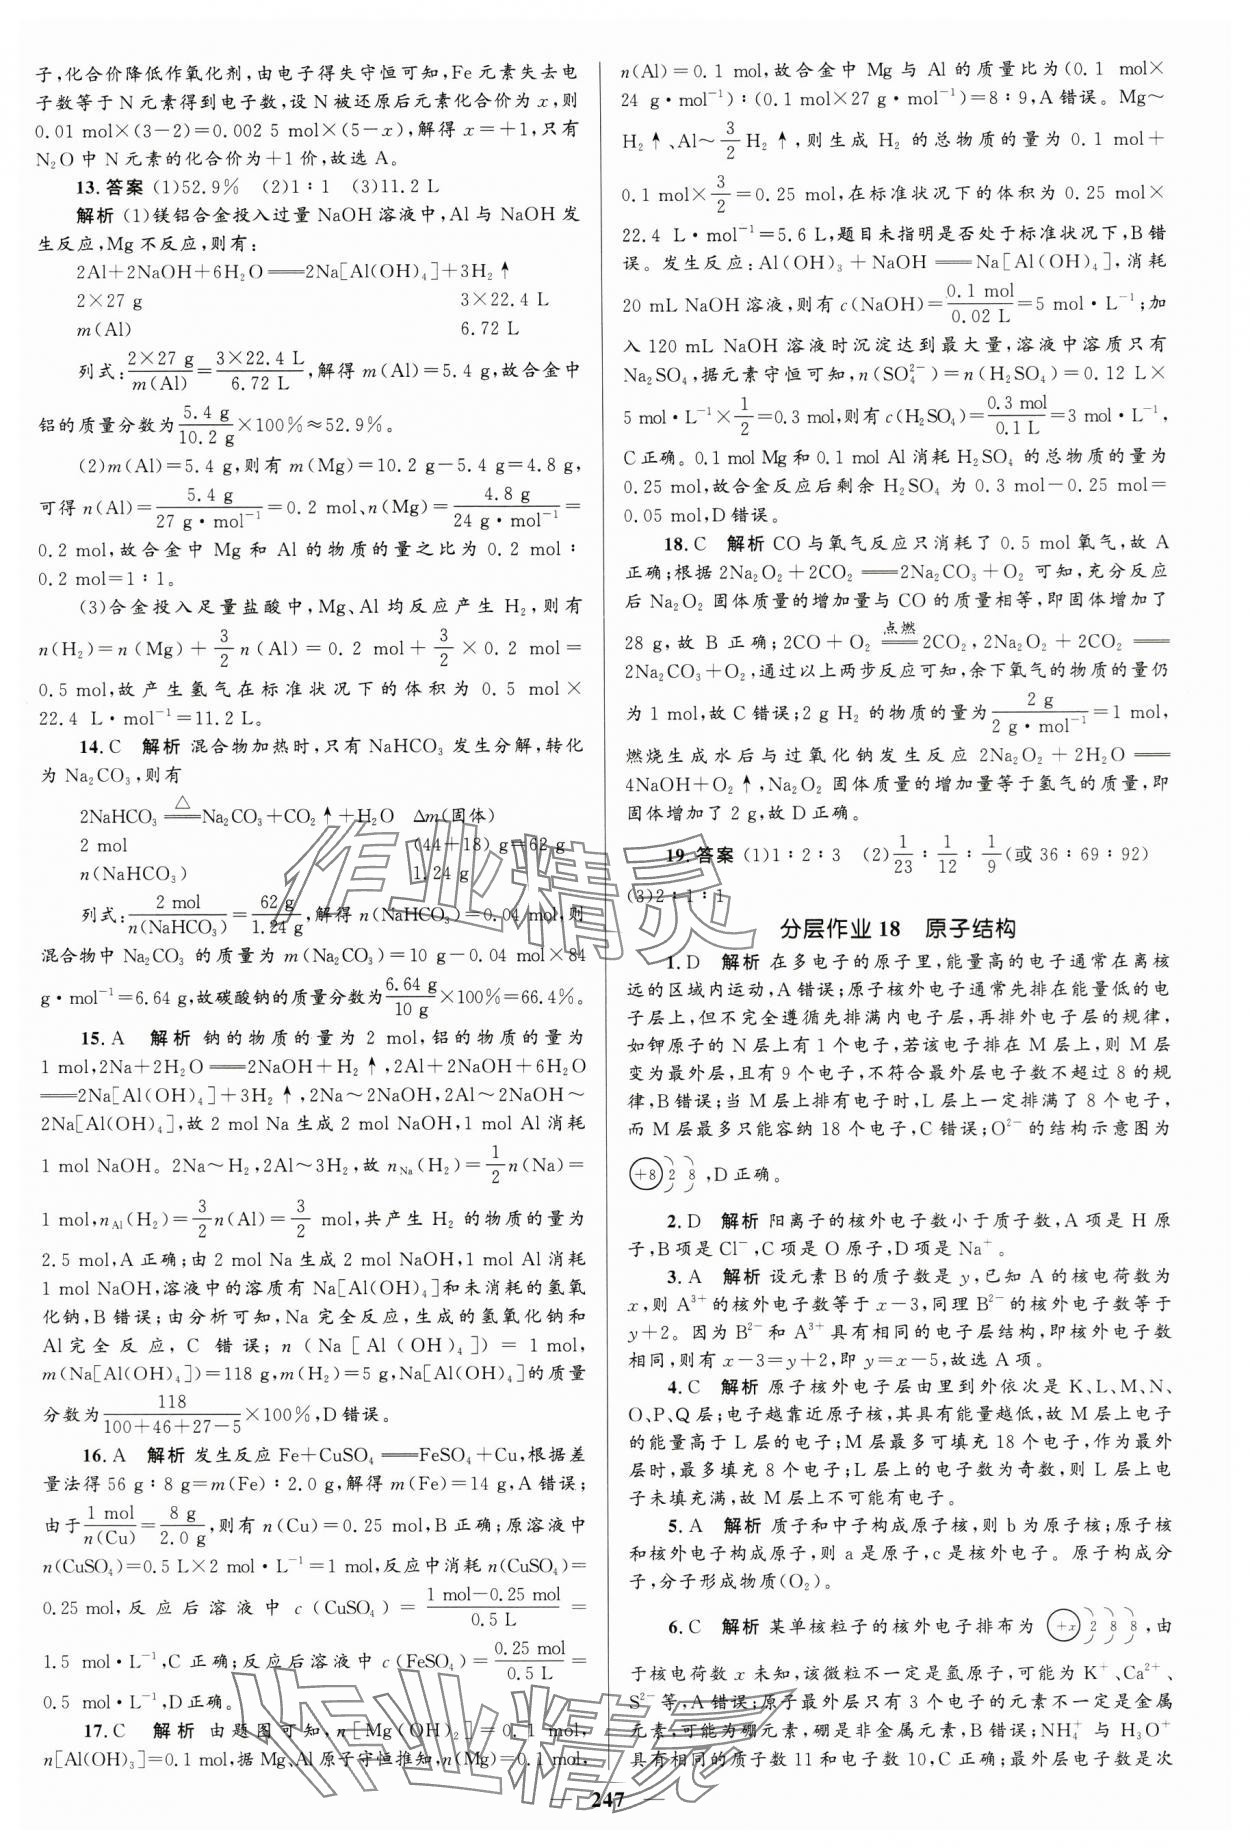 子,化合价降低作氧化剂,由电子得失守恒可知,Fe 元素失去电
子数等于 N 元素得到电子数,设 N 被还原后元素化合价为 x,则
0.01 mol×(3−2)=0.002 5 mol×(5−x),解得 x=+1,只有
N₂O 中 N 元素的化合价为+1 价,故选 A。
13.答案 (1)52.9% (2)1∶1 (3)11.2 L
解析 (1)镁铝合金投入过量 NaOH 溶液中,Al 与 NaOH 发
生反应,Mg 不反应,则有:
2Al+2NaOH+6H₂O══2Na[Al(OH)₄]+3H₂↑
2×27 g 3×22.4 L
m(Al) 6.72 L
列式:(2×27 g)/m(Al)=(3×22.4 L)/(6.72 L),解得 m(Al)=5.4 g,故合金中
铝的质量分数为(5.4 g)/(10.2 g)×100%≈52.9%。
(2)m(Al)=5.4 g,则有 m(Mg)=10.2 g−5.4 g=4.8 g,
可得 n(Al)=(5.4 g)/(27 g·mol⁻¹)=0.2 mol、n(Mg)=(4.8 g)/(24 g·mol⁻¹)=
0.2 mol,故合金中 Mg 和 Al 的物质的量之比为 0.2 mol∶
0.2 mol=1∶1。
(3)合金投入足量盐酸中,Mg、Al 均反应产生 H₂,则有
n(H₂)=n(Mg)+3/2 n(Al)=0.2 mol+3/2×0.2 mol=
0.5 mol,故产生氢气在标准状况下的体积为 0.5 mol×
22.4 L·mol⁻¹=11.2 L。
14.C 解析 混合物加热时,只有 NaHCO₃ 发生分解,转化
为 Na₂CO₃,则有
2NaHCO₃ ══△══ Na₂CO₃+CO₂↑+H₂O Δm(固体)
2 mol (44+18) g=62 g
n(NaHCO₃) 1.24 g
列式:(2 mol)/n(NaHCO₃)=(62 g)/(1.24 g),解得 n(NaHCO₃)=0.04 mol,则
混合物中 Na₂CO₃ 的质量为 m(Na₂CO₃)=10 g−0.04 mol×84
g·mol⁻¹=6.64 g,故碳酸钠的质量分数为(6.64 g)/(10 g)×100%=66.4%。
15.A 解析 钠的物质的量为 2 mol,铝的物质的量为
1 mol,2Na+2H₂O══2NaOH+H₂↑,2Al+2NaOH+6H₂O
══2Na[Al(OH)₄]+3H₂↑,2Na~2NaOH,2Al~2NaOH~
2Na[Al(OH)₄],故 2 mol Na 生成 2 mol NaOH,1 mol Al 消耗
1 mol NaOH。2Na~H₂,2Al~3H₂,故 n_Na(H₂)=1/2 n(Na)=
1 mol,n_Al(H₂)=3/2 n(Al)=3/2 mol,共产生 H₂ 的物质的量为
2.5 mol,A 正确;由 2 mol Na 生成 2 mol NaOH,1 mol Al 消耗
1 mol NaOH,溶液中的溶质有 Na[Al(OH)₄]和未消耗的氢氧
化钠,B 错误;由分析可知,Na 完全反应,生成的氢氧化钠和
Al 完全反应,C 错误;n(Na[Al(OH)₄])=1 mol,
m(Na[Al(OH)₄])=118 g,m(H₂)=5 g,Na[Al(OH)₄]的质量
分数为118/(100+46+27−5)×100%,D 错误。
16.A 解析 发生反应 Fe+CuSO₄══FeSO₄+Cu,根据差
量法得 56 g∶8 g=m(Fe)∶2.0 g,解得 m(Fe)=14 g,A 错误;
由于(1 mol)/n(Cu)=(8 g)/(2.0 g),则有 n(Cu)=0.25 mol,B 正确;原溶液中
n(CuSO₄)=0.5 L×2 mol·L⁻¹=1 mol,反应中消耗 n(CuSO₄)=
0.25 mol,反应后溶液中 c(CuSO₄)=(1 mol−0.25 mol)/(0.5 L)=
1.5 mol·L⁻¹,C 正确;反应后溶液中 c(FeSO₄)=(0.25 mol)/(0.5 L)=
0.5 mol·L⁻¹,D 正确。
17.C 解析 由题图可知,n[Mg(OH)₂]=0.1 mol,
n[Al(OH)₃]=0.1 mol,据 Mg、Al 原子守恒推知,n(Mg)=0.1 mol,
n(Al)=0.1 mol,故合金中 Mg 与 Al 的质量比为(0.1 mol×
24 g·mol⁻¹)∶(0.1 mol×27 g·mol⁻¹)=8∶9,A 错误。Mg~
H₂↑、Al~3/2 H₂↑,则生成 H₂ 的总物质的量为 0.1 mol+
0.1 mol×3/2=0.25 mol,在标准状况下的体积为 0.25 mol×
22.4 L·mol⁻¹=5.6 L,题目未指明是否处于标准状况下,B 错
误。发生反应:Al(OH)₃+NaOH══Na[Al(OH)₄],消耗
20 mL NaOH 溶液,则有 c(NaOH)=(0.1 mol)/(0.02 L)=5 mol·L⁻¹;加
入 120 mL NaOH 溶液时沉淀达到最大量,溶液中溶质只有
Na₂SO₄,据元素守恒可知,n(SO₄²⁻)=n(H₂SO₄)=0.12 L×
5 mol·L⁻¹×1/2=0.3 mol,则有 c(H₂SO₄)=(0.3 mol)/(0.1 L)=3 mol·L⁻¹,
C 正确。0.1 mol Mg 和 0.1 mol Al 消耗 H₂SO₄ 的总物质的量为
0.25 mol,故合金反应后剩余 H₂SO₄ 为 0.3 mol−0.25 mol=
0.05 mol,D 错误。
18.C 解析 CO 与氧气反应只消耗了 0.5 mol 氧气,故 A
正确;根据 2Na₂O₂+2CO₂══2Na₂CO₃+O₂ 可知,充分反应
后 Na₂O₂ 固体质量的增加量与 CO 的质量相等,即固体增加了
28 g,故 B 正确;2CO+O₂ ══点燃══ 2CO₂,2Na₂O₂+2CO₂══
2Na₂CO₃+O₂,通过以上两步反应可知,余下氧气的物质的量仍
为 1 mol,故 C 错误;2 g H₂ 的物质的量为(2 g)/(2 g·mol⁻¹)=1 mol,
燃烧生成水后与过氧化钠发生反应 2Na₂O₂+2H₂O══
4NaOH+O₂↑,Na₂O₂ 固体质量的增加量等于氢气的质量,即
固体增加了 2 g,故 D 正确。
19.答案 (1)1∶2∶3 (2)1/23∶1/12∶1/9(或 36∶69∶92)
(3)2∶1∶1
分层作业 18 原子结构
1.D 解析 在多电子的原子里,能量高的电子通常在离核
远的区域内运动,A 错误;原子核外电子通常先排在能量低的电
子层上,但不完全遵循先排满内电子层,再排外电子层的规律,
如钾原子的 N 层上有 1 个电子,若该电子排在 M 层上,则 M 层
变为最外层,且有 9 个电子,不符合最外层电子数不超过 8 的规
律,B 错误;当 M 层上排有电子时,L 层上一定排满了 8 个电子,
而 M 层最多只能容纳 18 个电子,C 错误;O²⁻ 的结构示意图为
(+8) 2 8,D 正确。
2.D 解析 阳离子的核外电子数小于质子数,A 项是 H 原
子,B 项是 Cl⁻,C 项是 O 原子,D 项是 Na⁺。
3.A 解析 设元素 B 的质子数是 y,已知 A 的核电荷数为
x,则 A³⁺ 的核外电子数等于 x−3,同理 B²⁻ 的核外电子数等于
y+2。因为 B²⁻ 和 A³⁺ 具有相同的电子层结构,即核外电子数
相同,则有 x−3=y+2,即 y=x−5,故选 A 项。
4.C 解析 原子核外电子层由里到外依次是 K、L、M、N、
O、P、Q 层;电子越靠近原子核,其具有能量越低,故 M 层上电子
的能量高于 L 层的电子;M 层最多可填充 18 个电子,作为最外
层时,最多填充 8 个电子;L 层上的电子数为奇数,则 L 层上电
子未填充满,故 M 层上不可能有电子。
5.A 解析 质子和中子构成原子核,则 b 为原子核;原子核
和核外电子构成原子,则 a 是原子,c 是核外电子。原子构成分
子,分子形成物质(O₂)。
6.C 解析 某单核粒子的核外电子排布为 (+x) 2 8 8,由
于核电荷数 x 未知,该微粒不一定是氩原子,可能为 K⁺、Ca²⁺、
S²⁻ 等,A 错误;原子最外层只有 3 个电子的元素不一定是金属
元素,可能为硼元素,硼是非金属元素,B 错误;NH₄⁺ 与 H₃O⁺
具有相同的质子数 11 和电子数 10,C 正确;最外层电子数是次
247
作业精灵
作业精灵